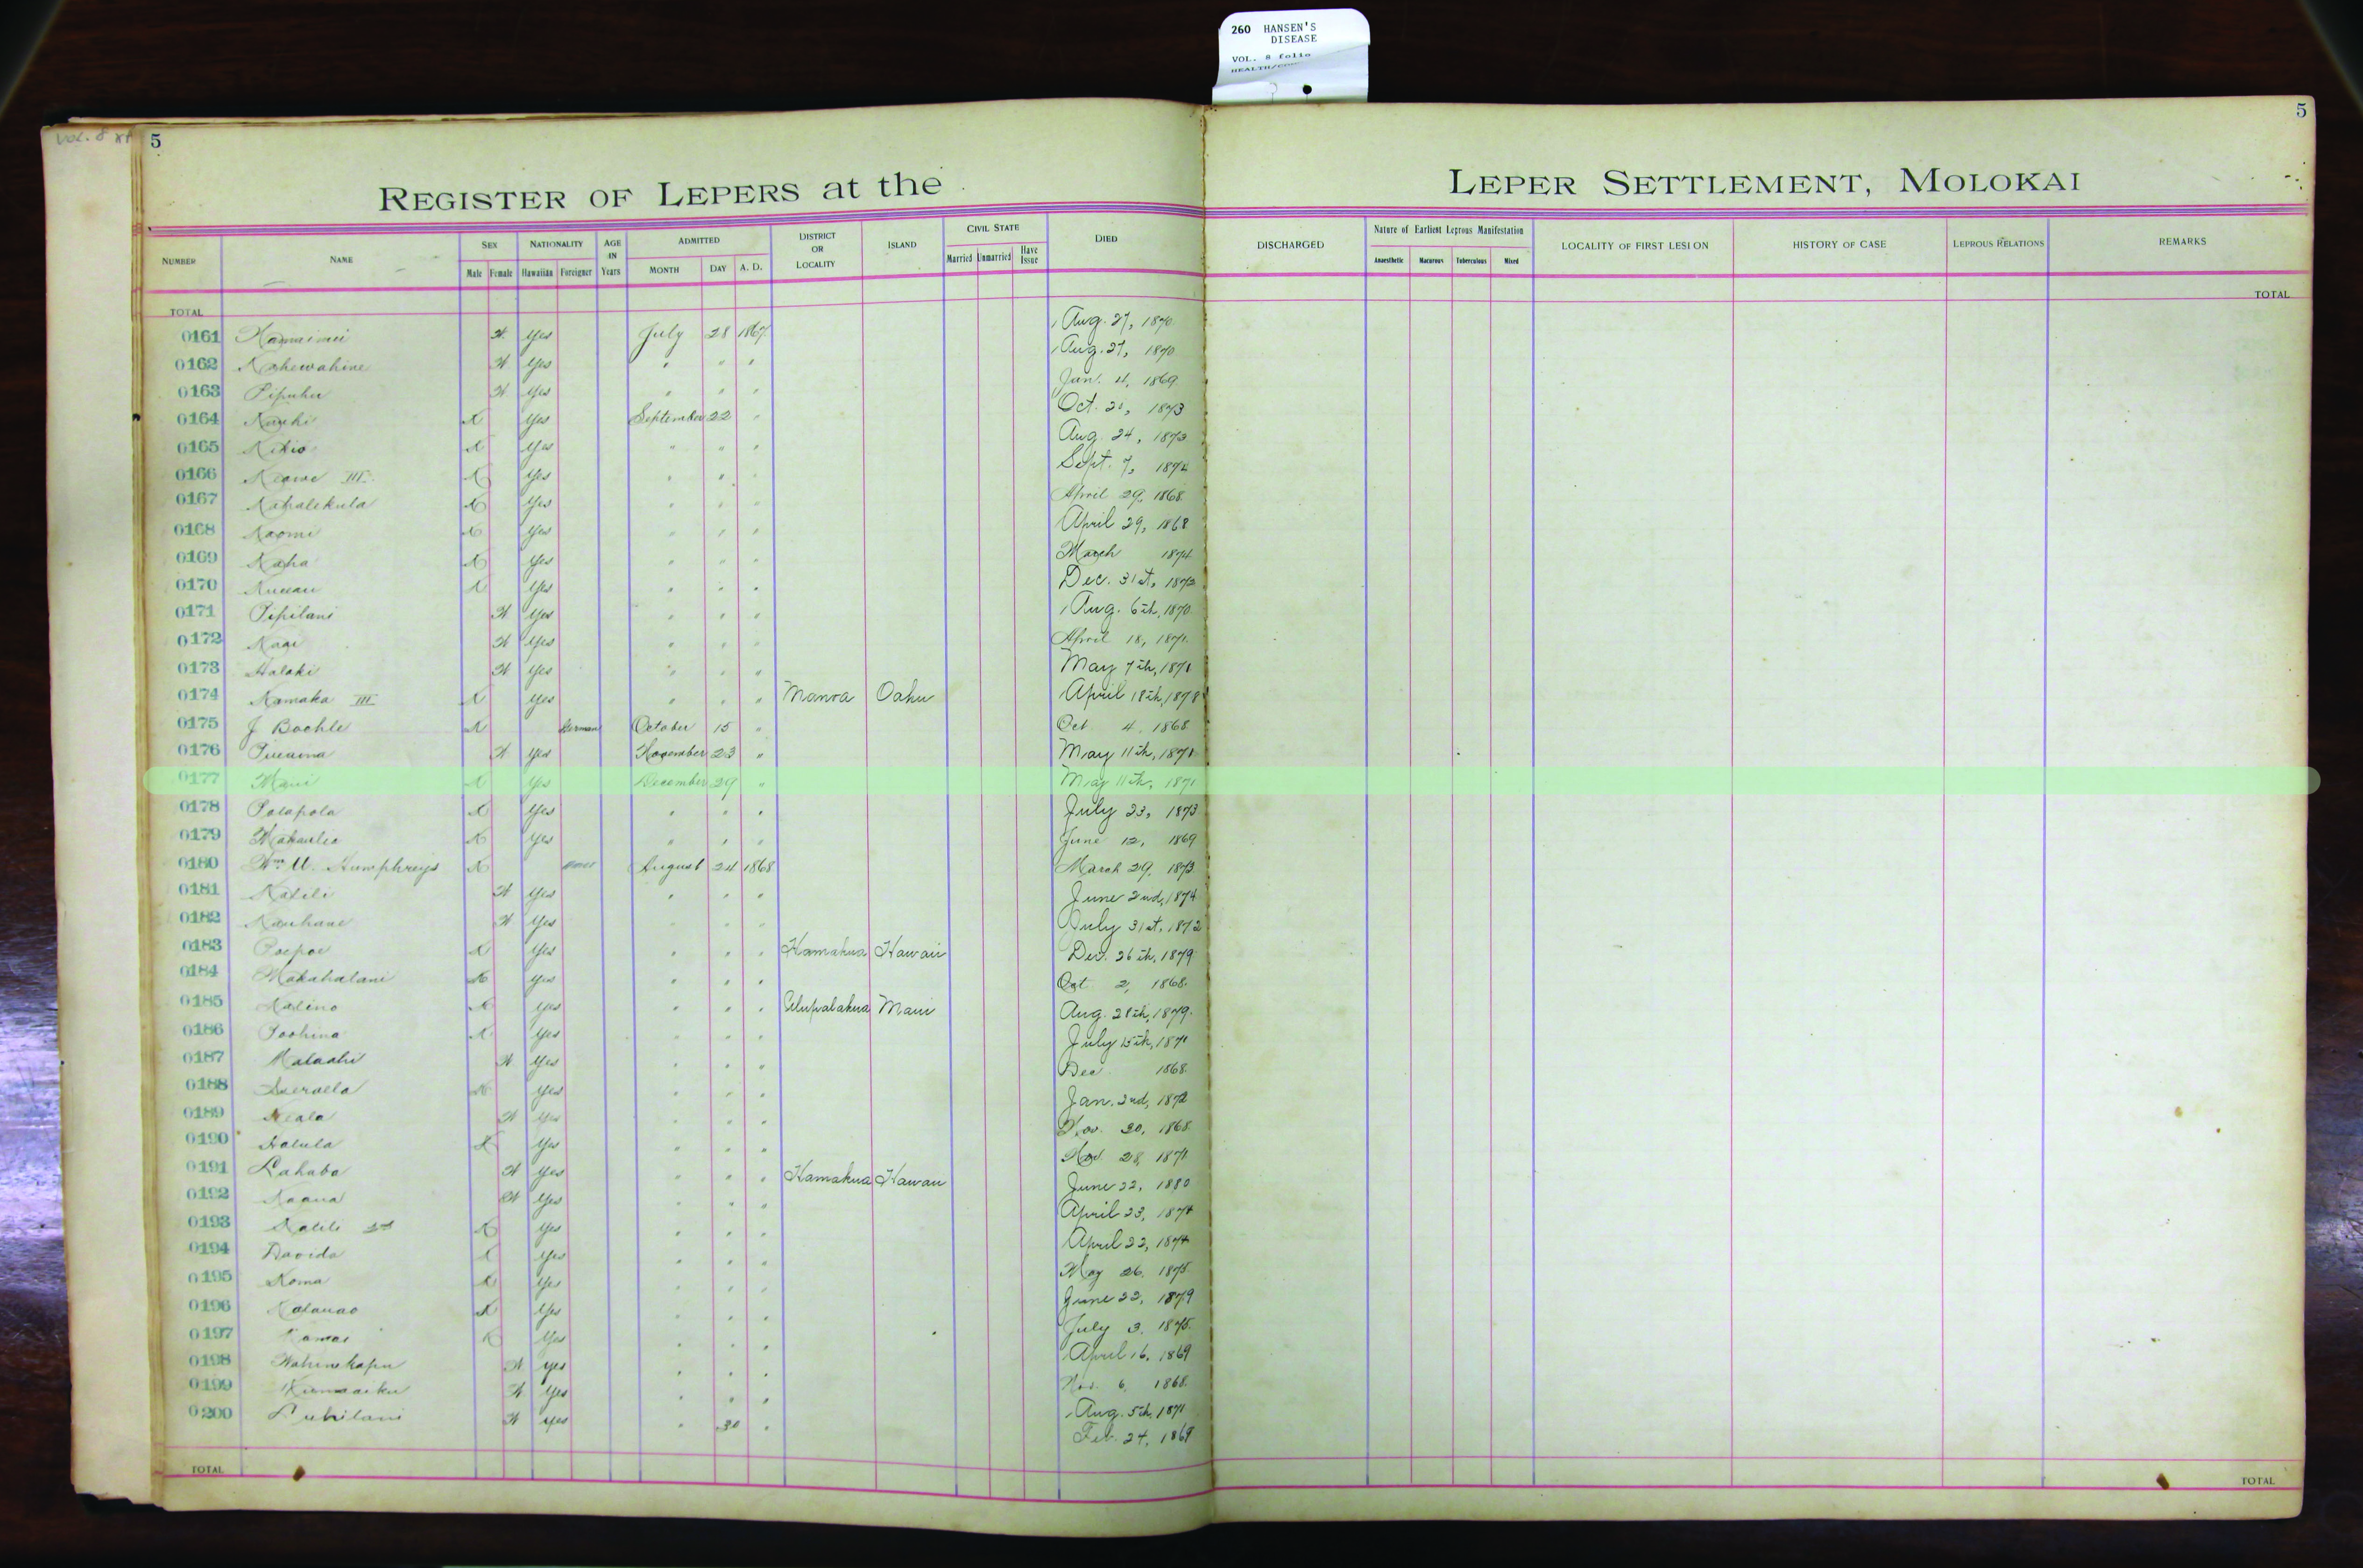 260 HANSEN'S
DISEASE
VOL. 8 folio
VOL. 8
5
5
REGISTER OF LEPERS at the LEPER SETTLEMENT, MOLOKAI
NUMBER NAME SEX NATIONALITY AGE IN Years ADMITTED DISTRICT OR LOCALITY ISLAND CIVIL STATE DIED DISCHARGED Nature of Earliest Leprous Manifestation LOCALITY OF FIRST LESION HISTORY OF CASE LEPROUS RELATIONS REMARKS
Male Female Hawaiian Foreigner MONTH DAY A. D. Married Unmarried Have Issue Anaesthetic Macurous Tuberculous Mixed
TOTAL TOTAL
0161 W Yes July 28 1867 Aug. 27, 1870
0162 Kahewahine W Yes " " " Aug. 27, 1870
0163 Pipuhu W Yes " " " Jan. 4, 1869
0164 X Yes September 22 " Oct. 1873
0165 Kikio X Yes " " " Aug. 24, 1873
0166 Keawe III X Yes " " " Sept. 7, 1874
0167 Kahalekula X Yes " " " April 29, 1868
0168 Naomi X Yes " " " April 29, 1868
0169 Kaha X Yes " " " March 1874
0170 X Yes " " " Dec. 31st, 1873
0171 Pipilani W Yes " " " Aug. 6th, 1870
0172 W Yes " " " April 18, 1871
0173 Halaki W Yes " " " May 7th, 1871
0174 Kamaka III X Yes " " " Manoa Oahu April 18th, 1878
0175 J Bochle X German October 15 " Oct 4, 1868
0176 W Yes November 23 " May 11th, 1871
0177 Maui X Yes December 29 " May 11th, 1871
0178 Polapola X Yes " " " July 23, 1873
0179 X Yes " " " June 12, 1869
0180 Wm U. Humphreys X August 24 1868 March 29, 1873
0181 Kalili W Yes " " " June 2nd, 1874
0182 Kauhane W Yes " " " July 31st, 1872
0183 Poepoe X Yes " " " Hamakua Hawaii Dec. 26th, 1879
0184 Makahalani X Yes " " " Oct 2, 1868
0185 Kalino X Yes " " " Ulupalakua Maui Aug. 28th, 1879
0186 Poohina X Yes " " " July 15th, 1871
0187 Malaahi W Yes " " " Dec 1868
0188 X Yes " " " Jan. 2nd, 1872
0189 Keala W Yes " " " Nov. 30, 1868
0190 Halula X Yes " " " Nov. 28, 1871
0191 Lahaba W Yes " " " Hamakua Hawaii June 22, 1880
0192 Kaaua W Yes " " " April 23, 1874
0193 Kalili 2nd X Yes " " " April 22, 1874
0194 Davida X Yes " " " May 26, 1875
0195 Koma X Yes " " " June 22, 1879
0196 Kalauao X Yes " " " July 3, 1875
0197 Kamai X Yes " " " April 16, 1869
0198 Wahinekapu W Yes " " " Nov. 6, 1868
0199 W Yes " " " Aug. 5th, 1871
0200 W Yes " 30 " Feb. 24, 1869
TOTAL TOTAL